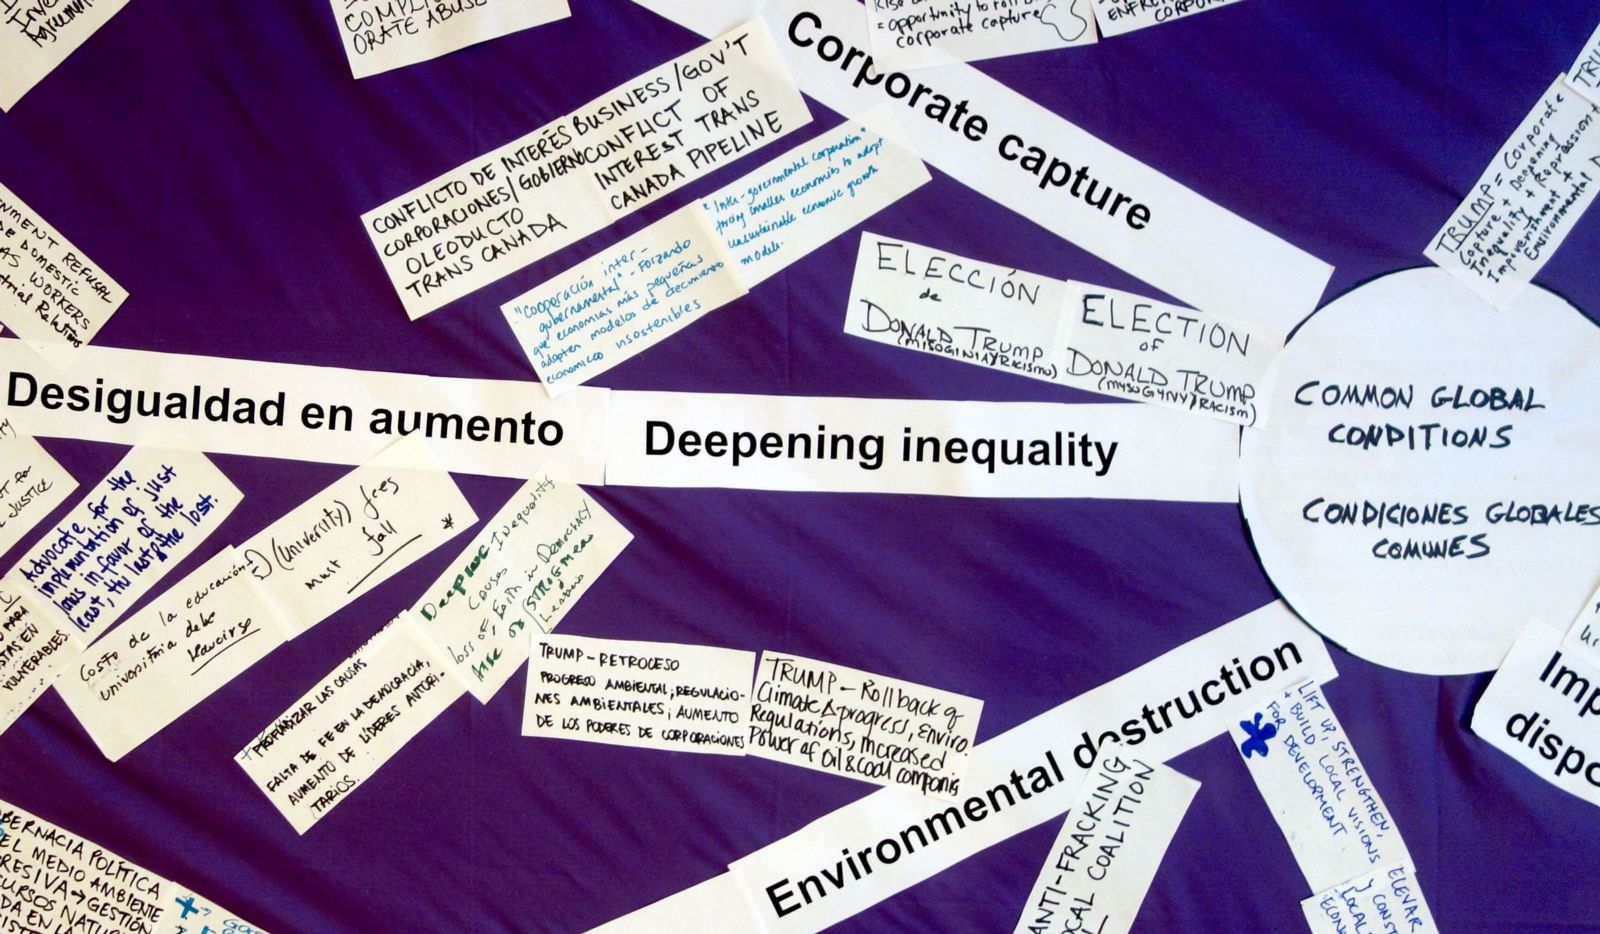 COMPLI
ORATE ABUSE
= opportunity to roll b
corporate capture
ENFRE
CORPOR
Corporate capture
CONFLICTO DE INTERÉS
CORPORACIONES/GOBIERNO
OLEODUCTO
TRANS CANADA
BUSINESS/GOV'T
CONFLICT OF
INTEREST TRANS
CANADA PIPELINE
"Inter-governmental corporation"
forcing smaller economies to adopt
unsustainable economic growth
models.
"Cooperación inter-
gubernamental" - Forzando
que economías más pequeñas
adopten modelos de crecimiento
económico insostenibles
ELECCIÓN
de
DONALD TRUMP
(MISOGINIA y RACISMO)
ELECTION
OF
DONALD TRUMP
(MYSOGYNY/RACISM)
TRUMP = Corporate
Capture + Deepening
Inequality + Repression +
Impoverishment +
Environmental D
TRU
ENMENT REFUSAL
E DOMESTIC
AS WORKERS
strial Relations
Desigualdad en aumento
Deepening inequality
COMMON GLOBAL
CONDITIONS
CONDICIONES GLOBALES
COMUNES
JUSTICE
Advocate for the
implementation of just
laws in favor of the
least, the last & the lost.
PARA
STAS EN
VULNERABLES.
Costo de la educación
universitaria debe
reducirse
(University) fees
must fall *
Deepening Inequality
Causes
loss of faith in Democracy
rise of STRONGMEN
Leaders
PROFUNDIZAR LAS CAUSAS
FALTA DE FE EN LA DEMOCRACIA,
AUMENTO DE LÍDERES AUTORI-
TARIOS.
TRUMP - RETROCESO
PROGRESO AMBIENTAL; REGULACIO-
NES AMBIENTALES; AUMENTO
DE LOS PODERES DE CORPORACIONES
TRUMP - Rollback of
Climate Δ progress, Enviro.
Regulations, Increased
Power of Oil & Coal companies
Environmental destruction
ANTI-FRACKING
LOCAL COALITION
LIFT UP, STRENGTHEN,
+ BUILD LOCAL VISIONS
FOR DEVELOPMENT
ELEVAR
Y CONST
LOCAL
ECON
Imp
dispo
BERNACIA POLÍTICA
EL MEDIO AMBIENTE
RESIVA → GESTIÓN
CURSOS NATU
DA EN LA